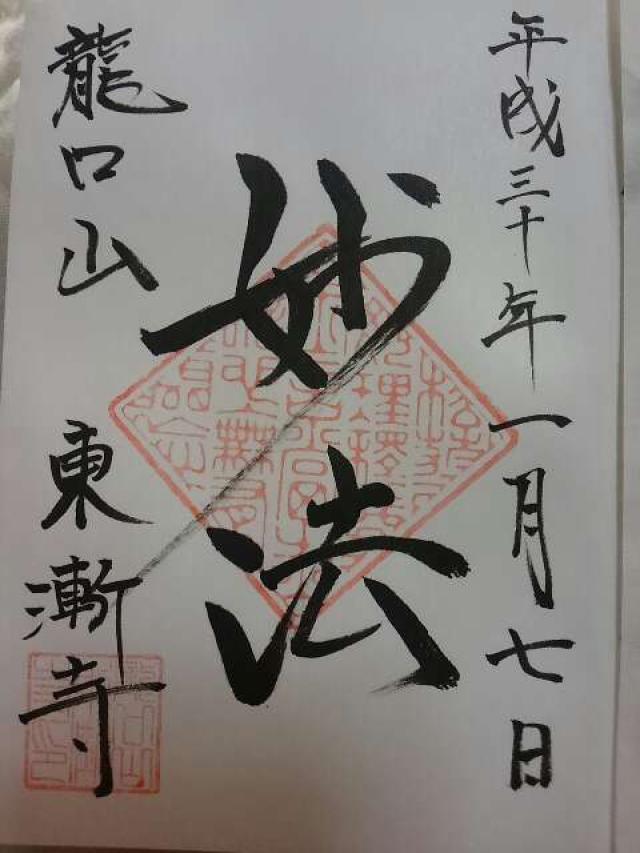 平成三十年一月七日
妙法
龍口山 東漸寺